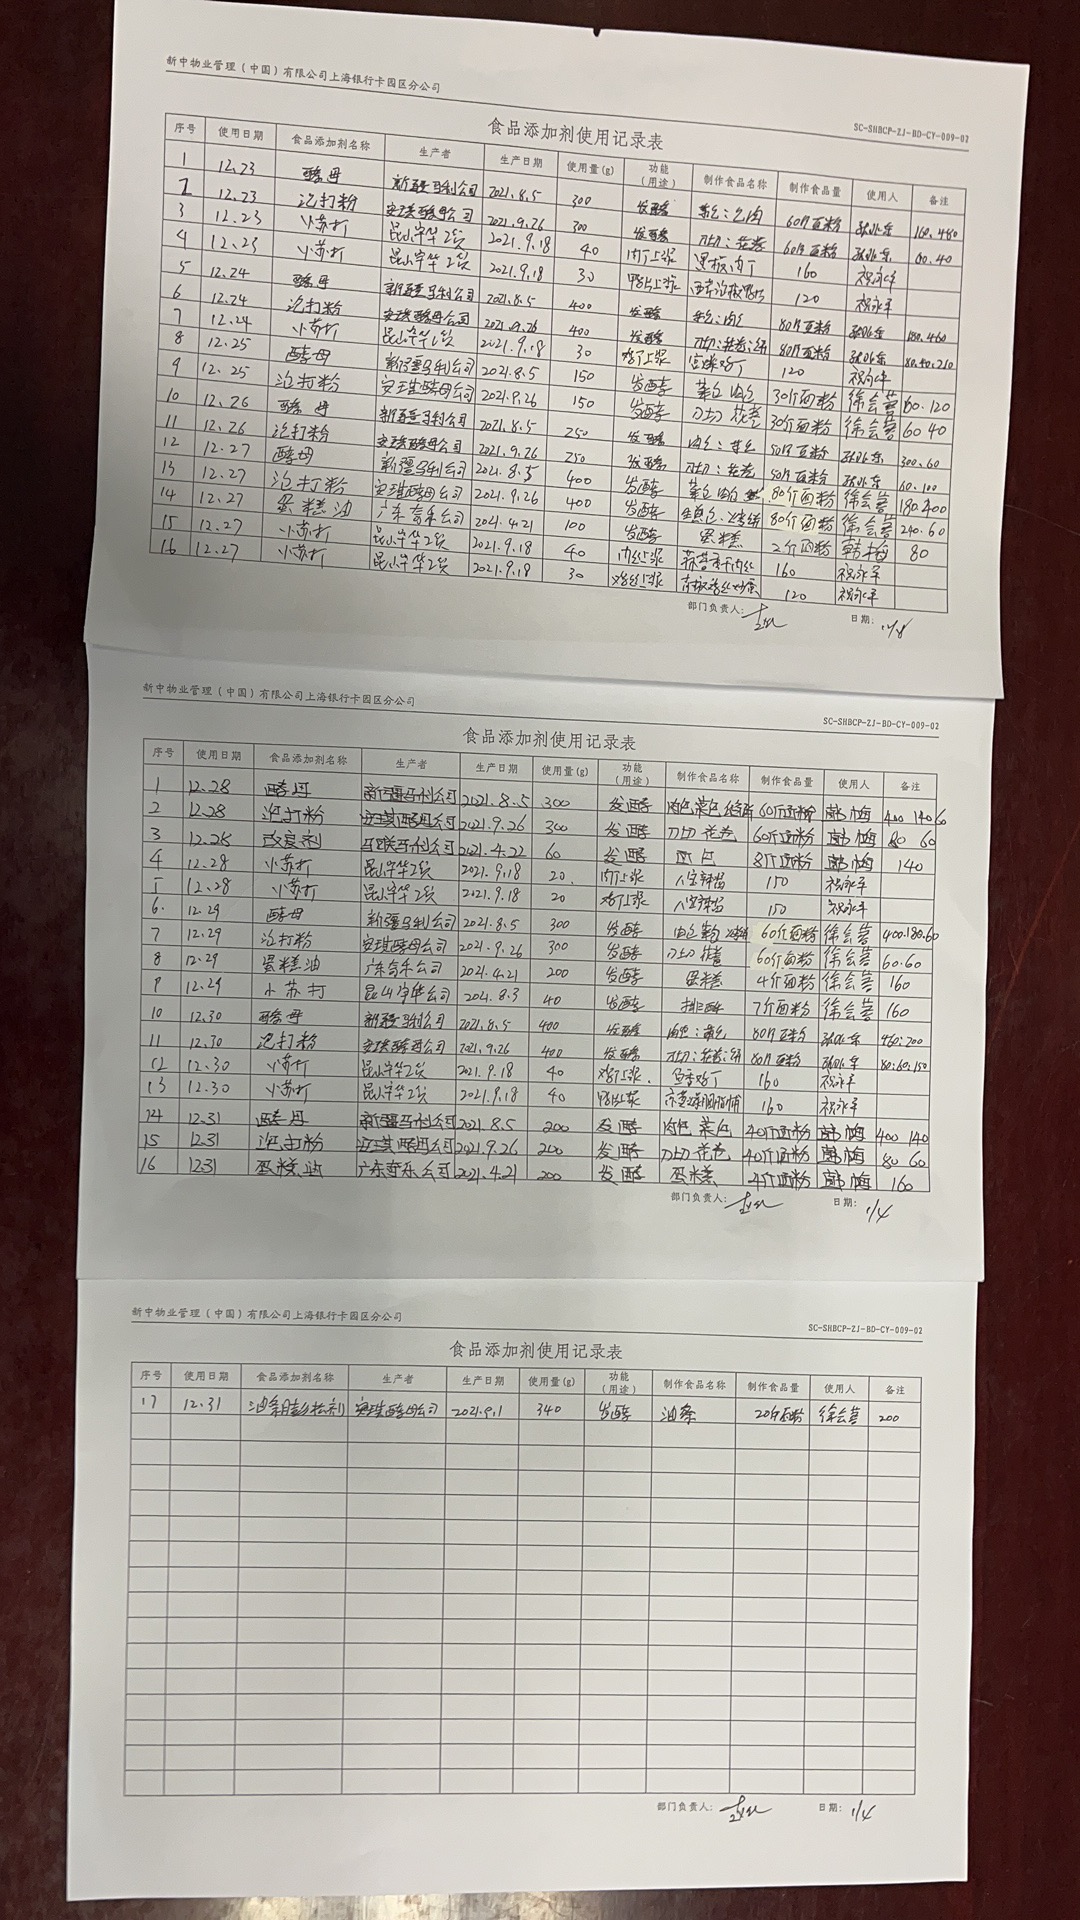 新中物业管理（中国）有限公司上海银行卡园区分公司
SC-SHBCP-ZJ-BD-CY-009-02
食品添加剂使用记录表
序号 使用日期 食品添加剂名称 生产者 生产日期 使用量(g) 功能(用途) 制作食品名称 制作食品量 使用人 备注
1 12.23 酵母 新疆马利公司 2021.8.5 300 发酵 菜包:肉包 60斤面粉 160.480
2 12.23 泡打粉 安琪酵母公司 2021.9.26 300 发酵 刀切:花卷 60斤面粉 60.40
3 12.23 小苏打 2021.9.18 40 肉丁上浆 黑椒肉丁 160 祝永平
4 12.23 小苏打 2021.9.18 30 鸭片上浆 120 祝永平
5 12.24 酵母 新疆马利公司 2021.8.5 400 发酵 菜包:肉包 80斤面粉 180.460
6 12.24 泡打粉 安琪酵母公司 2021.9.26 400 发酵 刀切:花卷:饼 80斤面粉 80.40.210
7 12.24 小苏打 2021.9.18 30 鸡丁上浆 宫爆鸡丁 120 祝永平
8 12.25 酵母 新疆马利公司 2021.8.5 150 发酵 菜包 肉包 30斤面粉 徐会营 60.120
9 12.25 泡打粉 安琪酵母公司 2021.9.26 150 发酵 刀切 花卷 30斤面粉 徐会营 60 40
10 12.26 酵母 新疆马利公司 2021.8.5 250 发酵 肉包:菜包 50斤面粉 300.60
11 12.26 泡打粉 安琪酵母公司 2021.9.26 250 发酵 刀切:花卷 50斤面粉 60.100
12 12.27 酵母 新疆马利公司 2021.8.5 400 发酵 菜包 肉包 80斤面粉 徐会营 180.400
13 12.27 泡打粉 安琪酵母公司 2021.9.26 400 发酵 80斤面粉 徐会营 240.60
14 12.27 蛋糕油 广东奇乐公司 2021.4.21 100 发酵 蛋糕 2斤面粉 韩梅 80
15 12.27 小苏打 2021.9.18 40 肉丝上浆 160 祝永平
16 12.27 小苏打 2021.9.18 30 鸡丝上浆 120 祝永平
部门负责人： 日期：
新中物业管理（中国）有限公司上海银行卡园区分公司
SC-SHBCP-ZJ-BD-CY-009-02
食品添加剂使用记录表
序号 使用日期 食品添加剂名称 生产者 生产日期 使用量(g) 功能(用途) 制作食品名称 制作食品量 使用人 备注
1 12.28 酵母 新疆马利公司 2021.8.5 300 发酵 肉包 菜包 60斤面粉 韩梅 400 140 60
2 12.28 泡打粉 安琪酵母公司 2021.9.26 300 发酵 刀切 花卷 60斤面粉 韩梅 80 60
3 12.28 改良剂 2021.4.22 60 发酵 面包 8斤面粉 韩梅 140
4 12.28 小苏打 2021.9.18 20 肉丁上浆 八宝辣酱 150 祝永平
5 12.28 小苏打 2021.9.18 20 鸡丁上浆 八宝辣酱 150 祝永平
6 12.29 酵母 新疆马利公司 2021.8.5 300 发酵 肉包 菜包 60斤面粉 徐会营 400.180.60
7 12.29 泡打粉 安琪酵母公司 2021.9.26 300 发酵 刀切 花卷 60斤面粉 徐会营 60.60
8 12.29 蛋糕油 广东奇乐公司 2021.4.21 200 发酵 蛋糕 4斤面粉 徐会营 160
9 12.29 小苏打 2021.8.3 40 发酵 7斤面粉 徐会营 160
10 12.30 酵母 新疆马利公司 2021.8.5 400 发酵 肉包:菜包 80斤面粉 460:200
11 12.30 泡打粉 安琪酵母公司 2021.9.26 400 发酵 刀切:花卷:饼 80斤面粉 80:60.150
12 12.30 小苏打 2021.9.18 40 鸡丁上浆 鱼香鸡丁 160 祝永平
13 12.30 小苏打 2021.9.18 40 鸭脯上浆 160 祝永平
14 12.31 酵母 新疆马利公司 2021.8.5 200 发酵 肉包 菜包 40斤面粉 韩梅 400 140
15 12.31 泡打粉 安琪酵母公司 2021.9.26 200 发酵 刀切 花卷 40斤面粉 韩梅 80 60
16 12.31 蛋糕油 广东奇乐公司 2021.4.21 200 发酵 蛋糕 4斤面粉 韩梅 160
部门负责人： 日期： 1/4
新中物业管理（中国）有限公司上海银行卡园区分公司
SC-SHBCP-ZJ-BD-CY-009-02
食品添加剂使用记录表
序号 使用日期 食品添加剂名称 生产者 生产日期 使用量(g) 功能(用途) 制作食品名称 制作食品量 使用人 备注
17 12.31 油条膨松剂 安琪酵母公司 2021.9.1 340 发酵 油条 20斤面粉 徐会营 200
部门负责人： 日期： 1/4